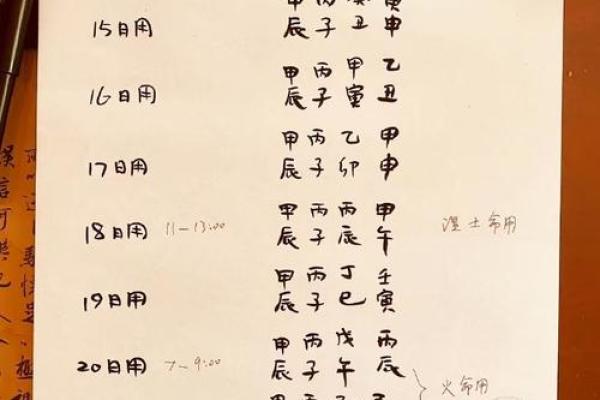 15日用 辰 子 丑 申
甲 丙 甲 乙
16日用 辰 子 寅 丑
甲 丙 乙 甲
17日用 辰 子 卯 申
甲 丙 丙 甲
18日用 11-13:00 辰 子 辰 午 湿土命用
甲 丙 丁 壬
19日用 辰 子 巳 寅
甲 丙 戊 丙
20日用 7-9:00 辰 子 午 辰
火命用